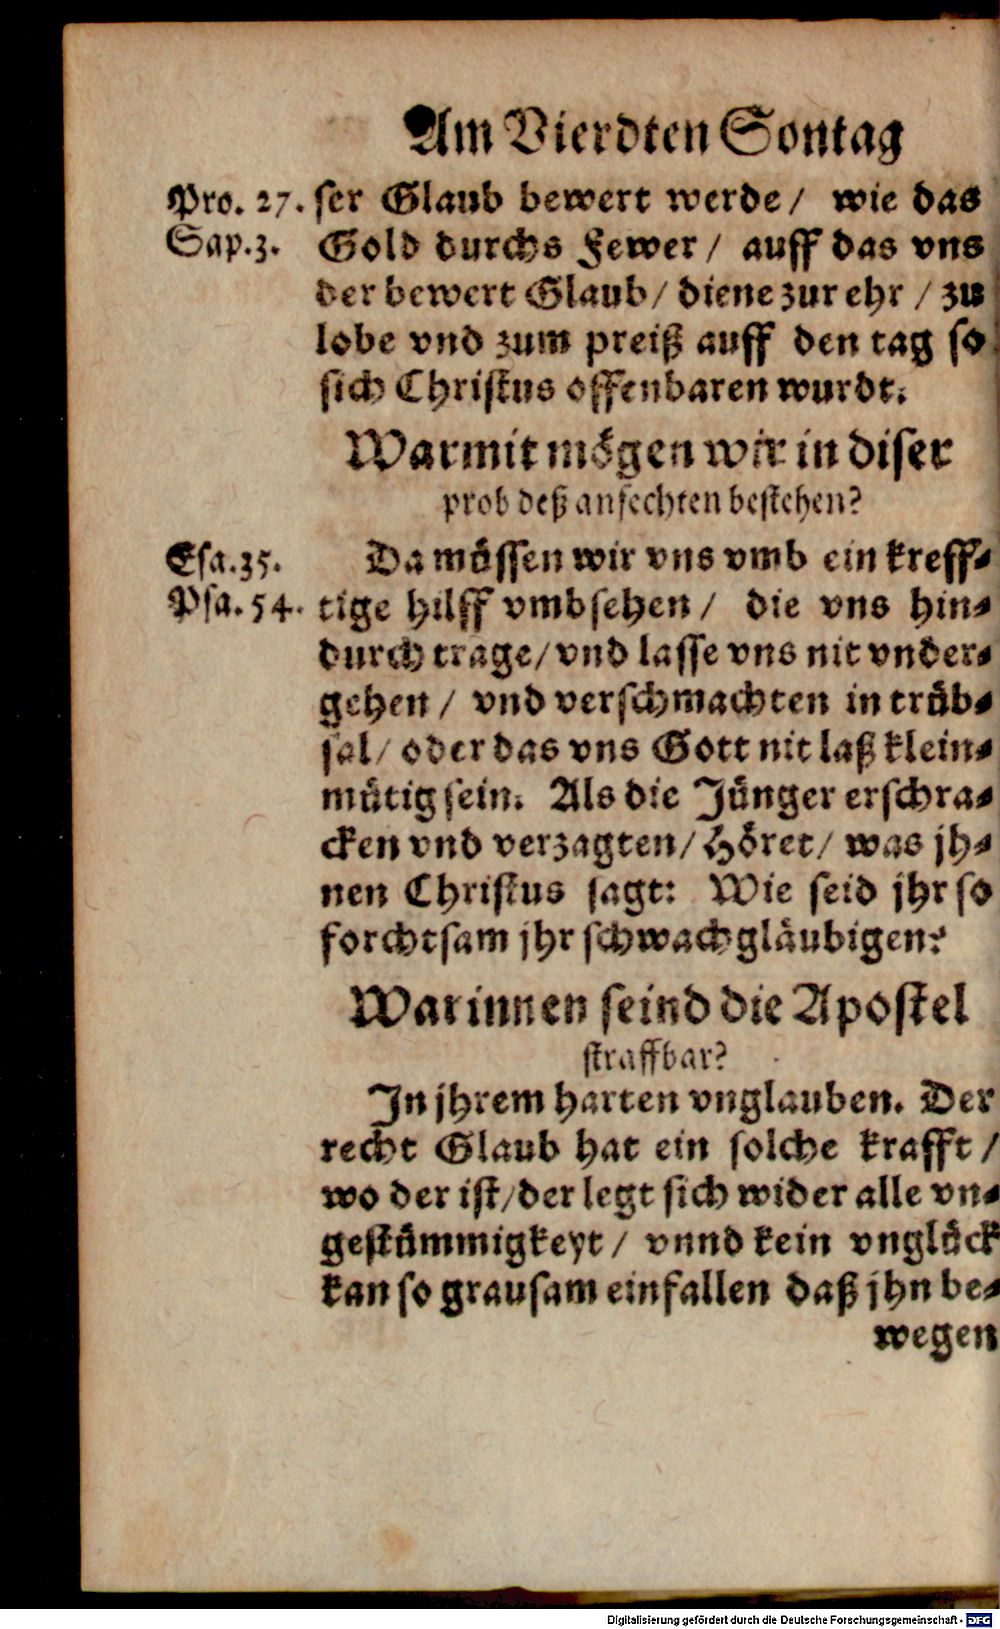 Am Vierdten Sontag
Pro. 27. ser Glaub bewert werde / wie das
Sap. 3. Gold durchs Fewer / auff das vns
der bewert Glaub / diene zur ehr / zu
lobe vnd zum preiß auff den tag so
sich Christus offenbaren wurdt.
Warmit mögen wir in diser
prob deß anfechten bestehen?
Esa. 35. Da müssen wir vns vmb ein kreff-
Psa. 54. tige hilff vmbsehen / die vns hin-
durch trage / vnd lasse vns nit vnder-
gehen / vnd verschmachten in trüb-
sal / oder das vns Gott nit laß klein-
mütig sein. Als die Jünger erschra-
cken vnd verzagten / Höret / was jh-
nen Christus sagt: Wie seid jhr so
forchtsam jhr schwachgläubigen?
Warinnen seind die Apostel
straffbar?
In jhrem harten vnglauben. Der
recht Glaub hat ein solche krafft /
wo der ist / der legt sich wider alle vn-
gestümmigkeyt / vnnd kein vnglück
kan so grausam einfallen daß jhn be-
wegen
Digitalisierung gefördert durch die Deutsche Forschungsgemeinschaft - DFG